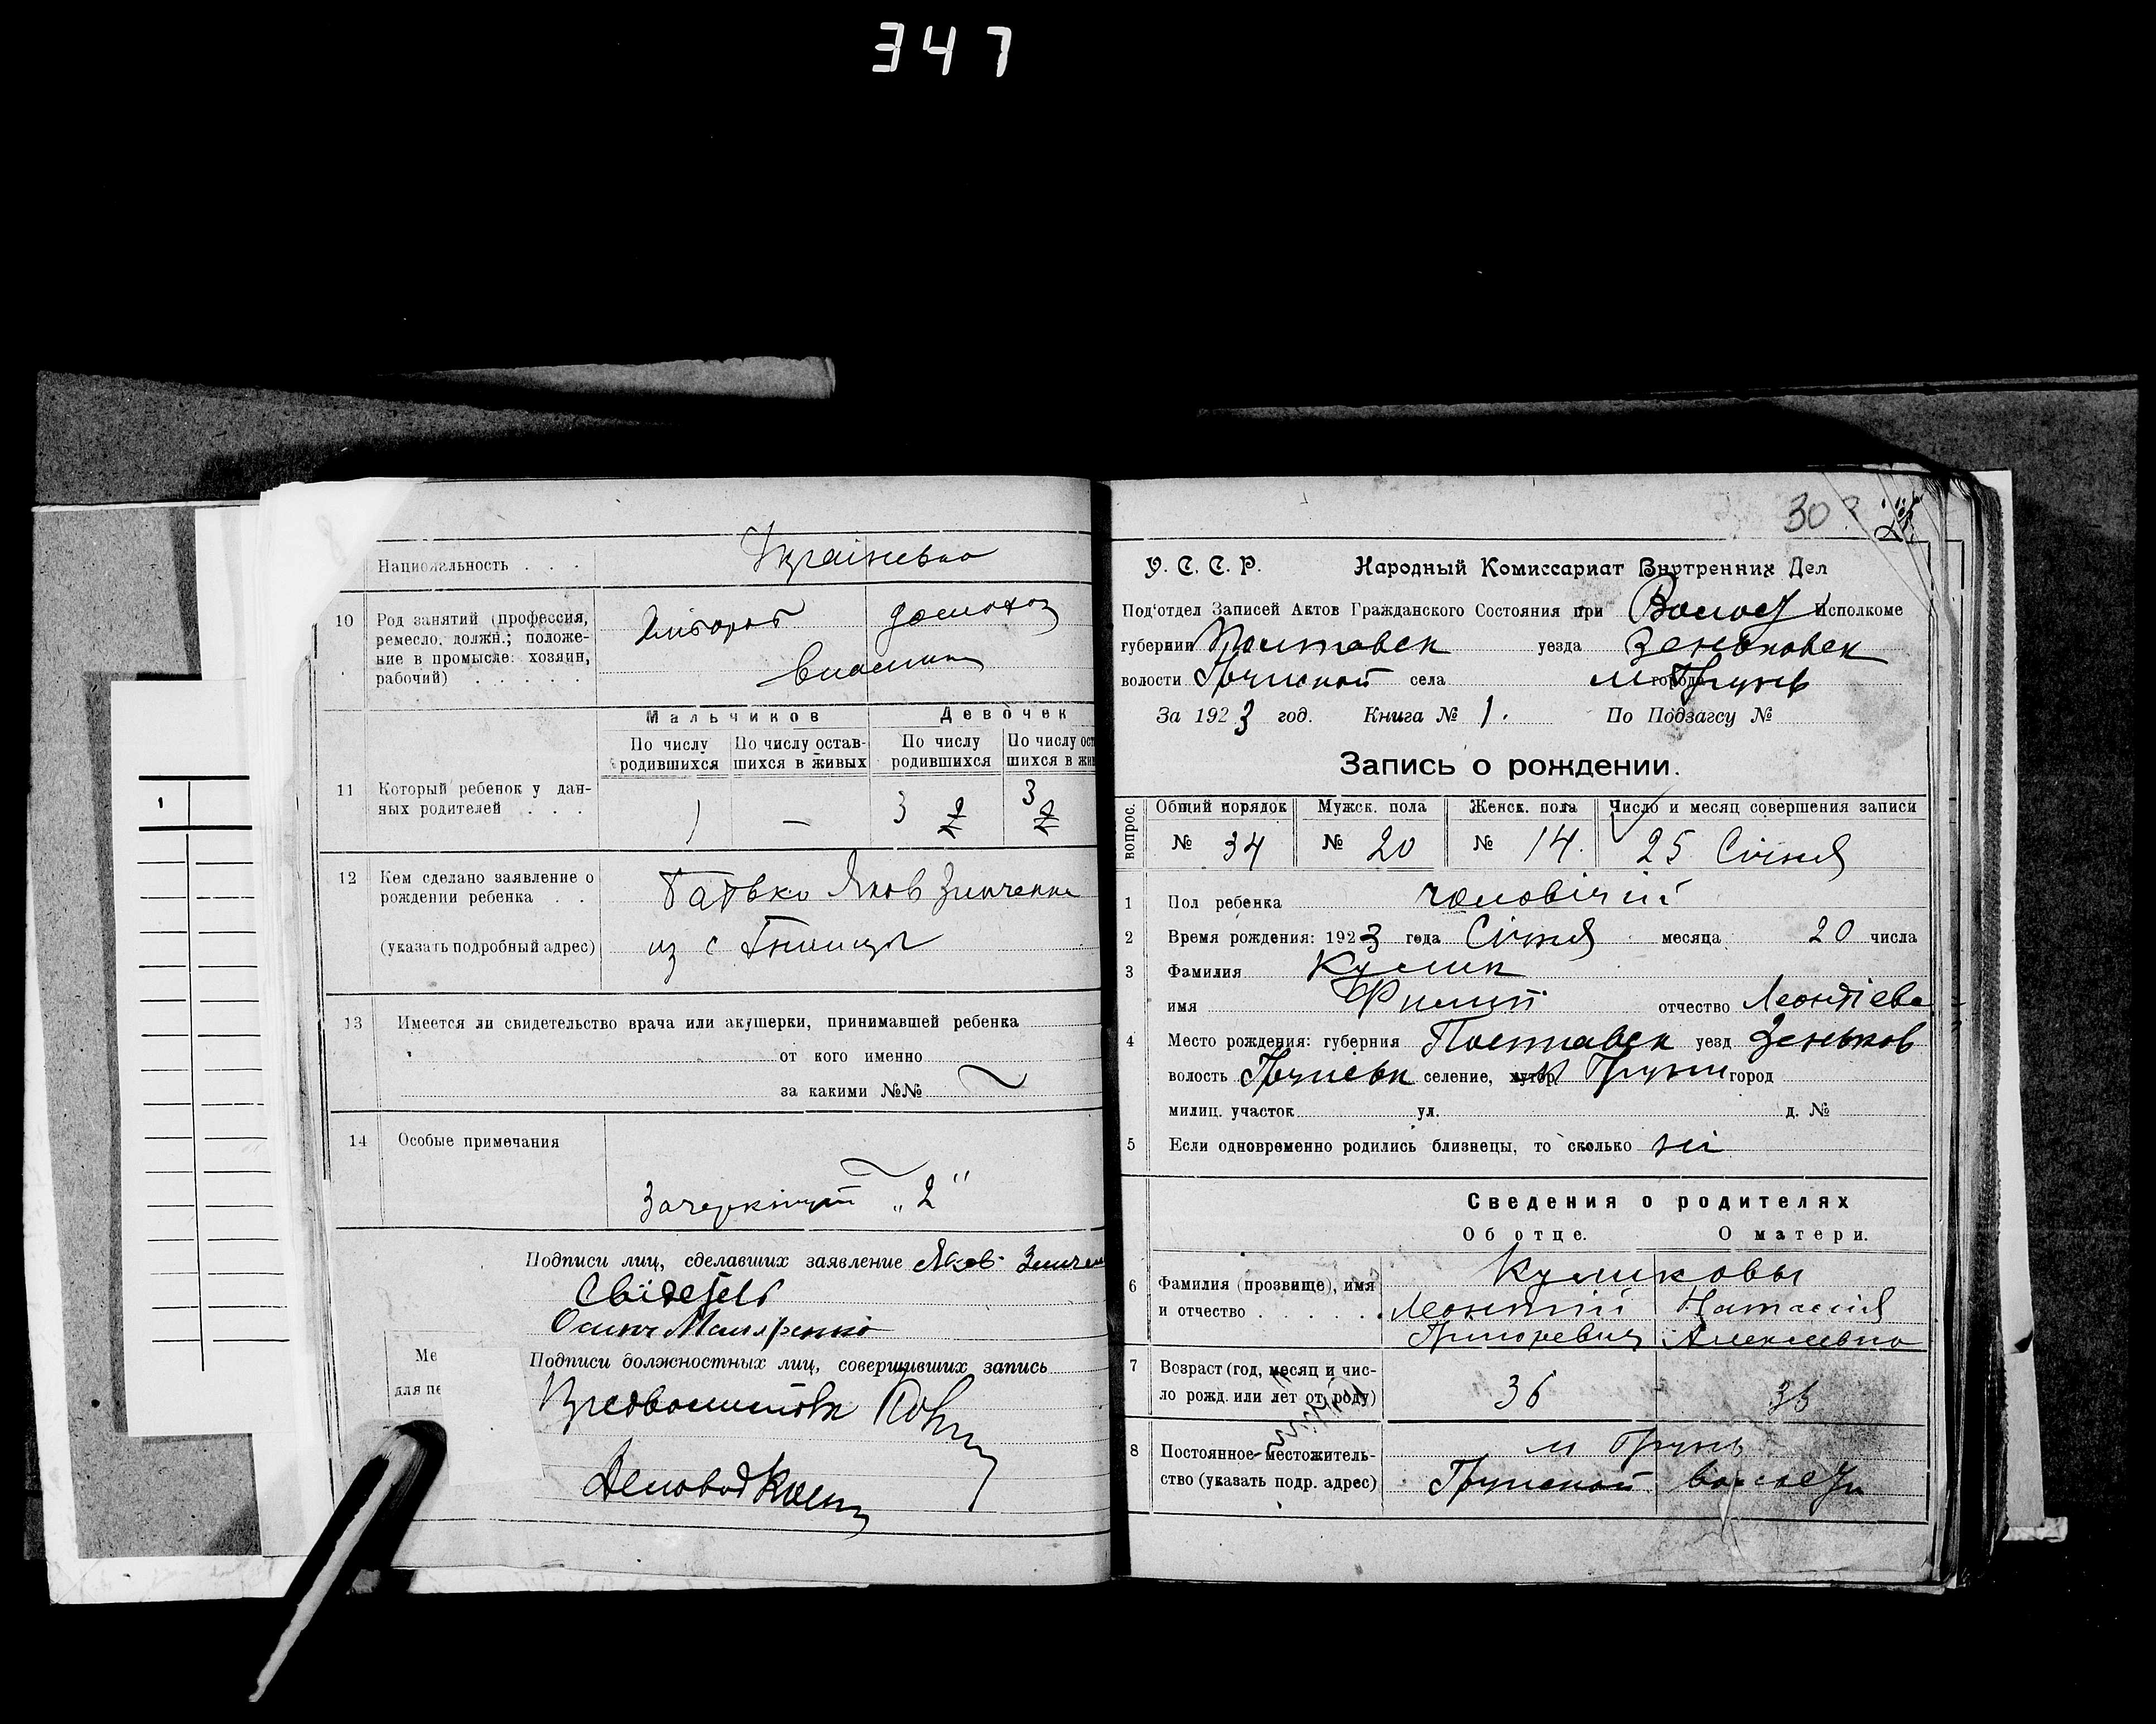 347
Национальность . . . Українська
10 Род занятий (профессия, ремесло, должн.; положение в промысле: хозяин, рабочий) . . . . . Хлібороб домохоз
власник
Мальчиков Девочек
По числу родившихся По числу остав-шихся в живых По числу родившихся По числу ост шихся в жи
11 Который ребенок у дан-
ных родителей . . . 1 — 3 2 3 2
12 Кем сделано заявление о
рождении ребенка . . Батько Яков Зинченко
(указать подробный адрес) из с
13 Имеется ли свидетельство врача или акушерки, принимавшей ребенка
от кого именно
за какими №№ ~
14 Особые примечания
Зачеркнут „2“
Подписи лиц, сделавших заявление Яков Зинчен
Свідетелі
Осип
Ме
для пе
Подписи должностных лиц, совершивших запись
Деловод
30
У. С. С. Р. Народный Комиссариат Внутренних Дел
Под‘отдел Записей Актов Гражданского Состояния при Волос Исполкоме
губернии Полтавск уезда Зеньковск
волости Грунской села города м Грунь
За 1923 год. Книга № 1. По Подзагсу №
Запись о рождении.
вопрос. Общий порядок Мужск. пола Женск. пола Число и месяц совершения записи
№ 34 № 20 № 14. 25 Січня
1 Пол ребенка чоловічий
2 Время рождения: 1923 года Січня месяца 20 числа
3 Фамилия Кулик
имя Филип отчество Леонтієв
4 Место рождения: губерния Полтавск уезд Зеньков
волость Грунська селение, хутор м Грунь город
милиц. участок ул. д. №
5 Если одновременно родились близнецы, то сколько ні
Сведения о родителях
Об отце. О матери.
6 Фамилия (прозвище), имя Куликовы
и отчество . . . . . . Леонтий Наталія
Григоревич Алексеевна
7 Возраст (год, месяц и чис-
ло рожд. или лет от роду) 36 35
8 Постоянное местожитель- м Грунь
ство (указать подр. адрес) Грунской волости